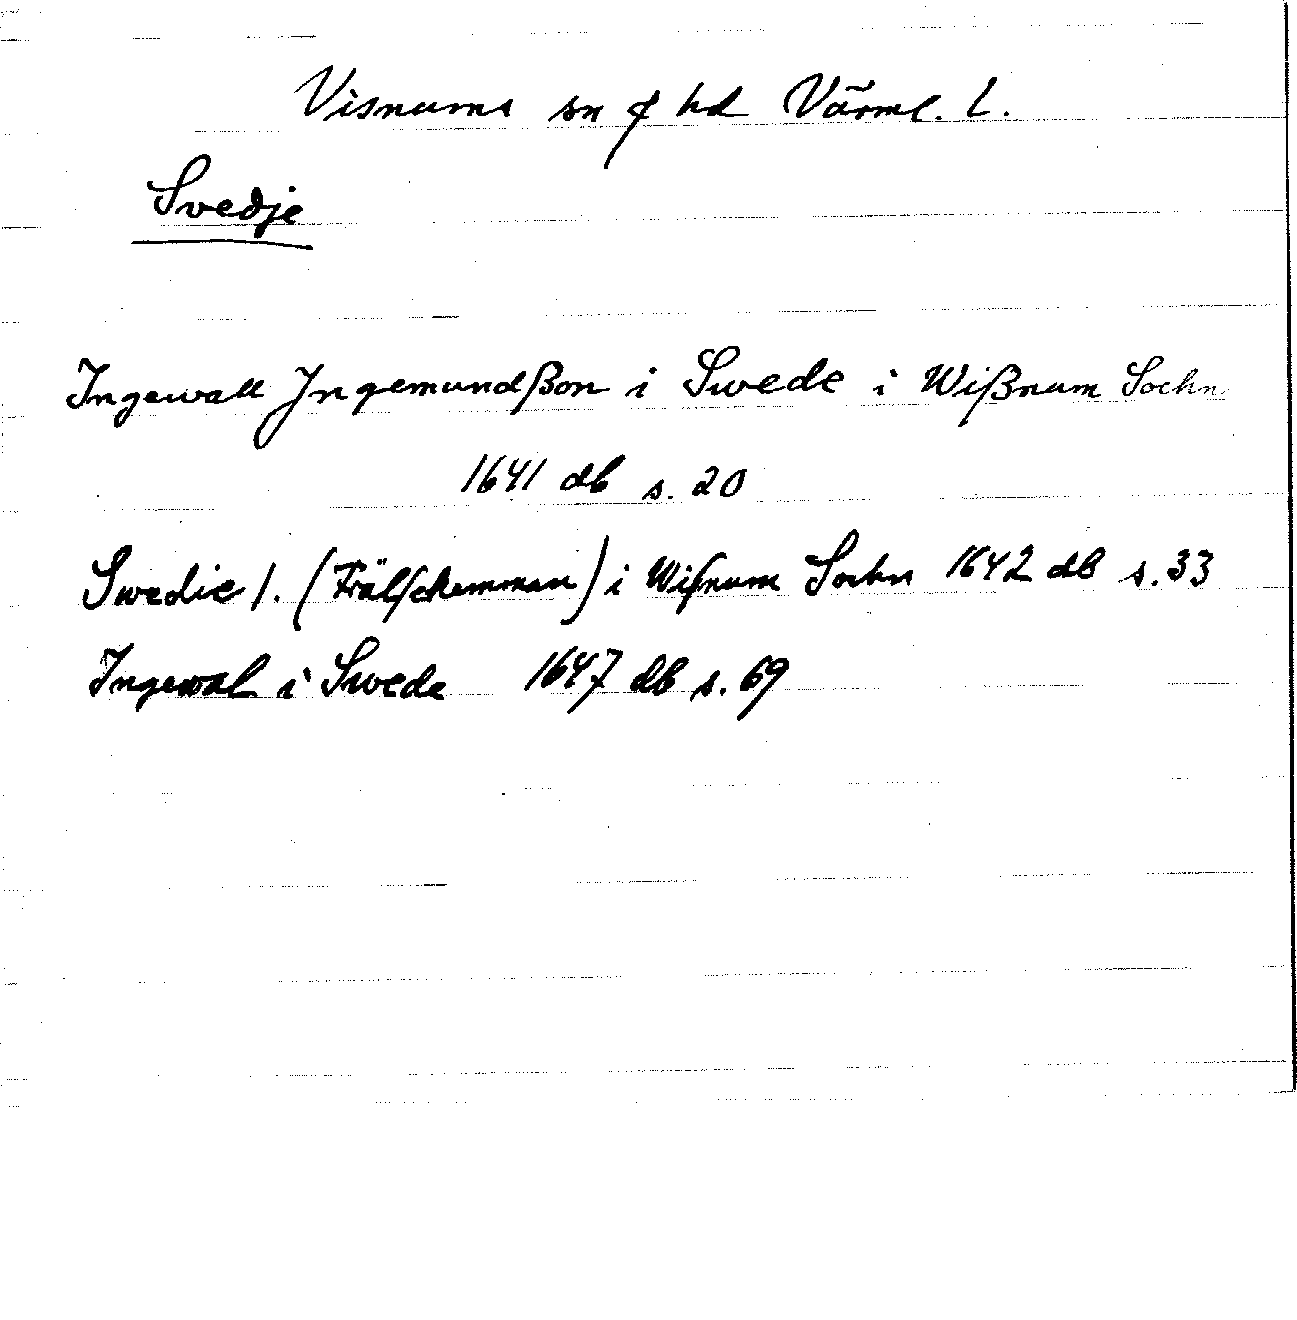 Visnums sn & hd Värml. l.
Svedje
Ingewall Jngemundßon i Swede i Wißnum Sochn
1641 db s. 20
Swedie 1. (Frälsehemman) i Wisnum Sochn 1642 db s. 33
Ingewal i Swede 1647 db s. 69